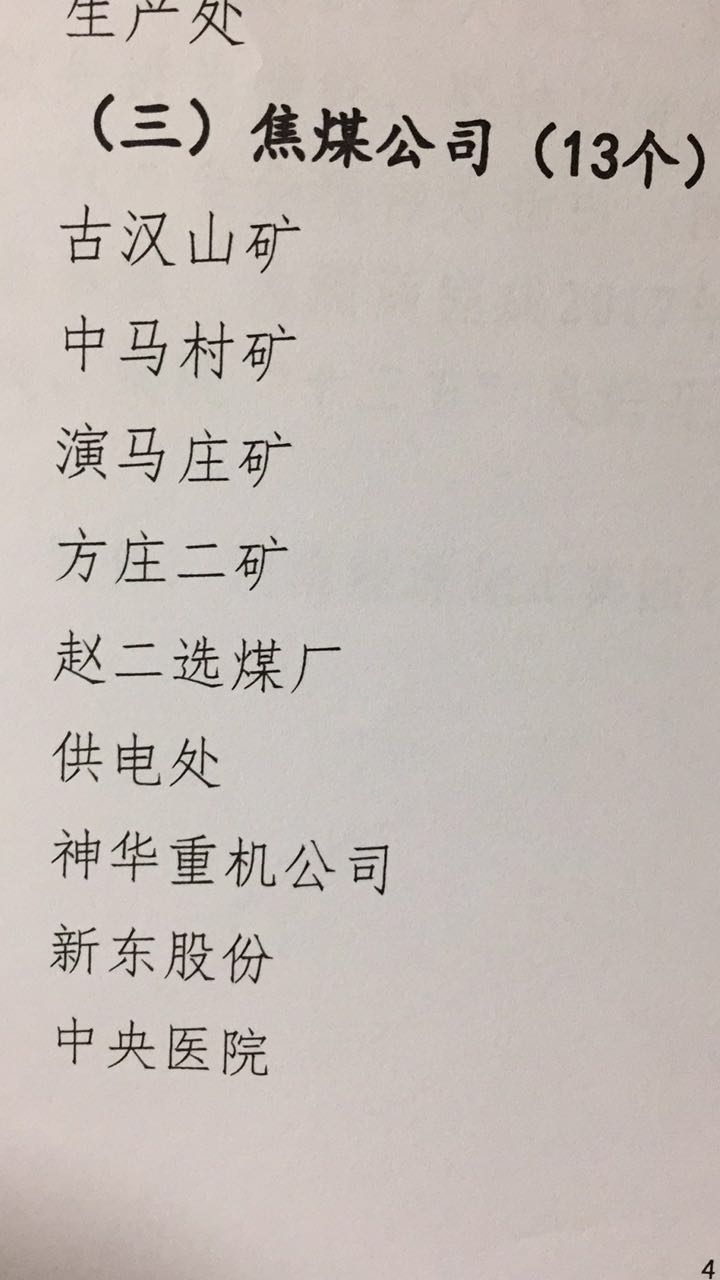 生产处
（三）焦煤公司（13个）
古汉山矿
中马村矿
演马庄矿
方庄二矿
赵二选煤厂
供电处
神华重机公司
新东股份
中央医院
4